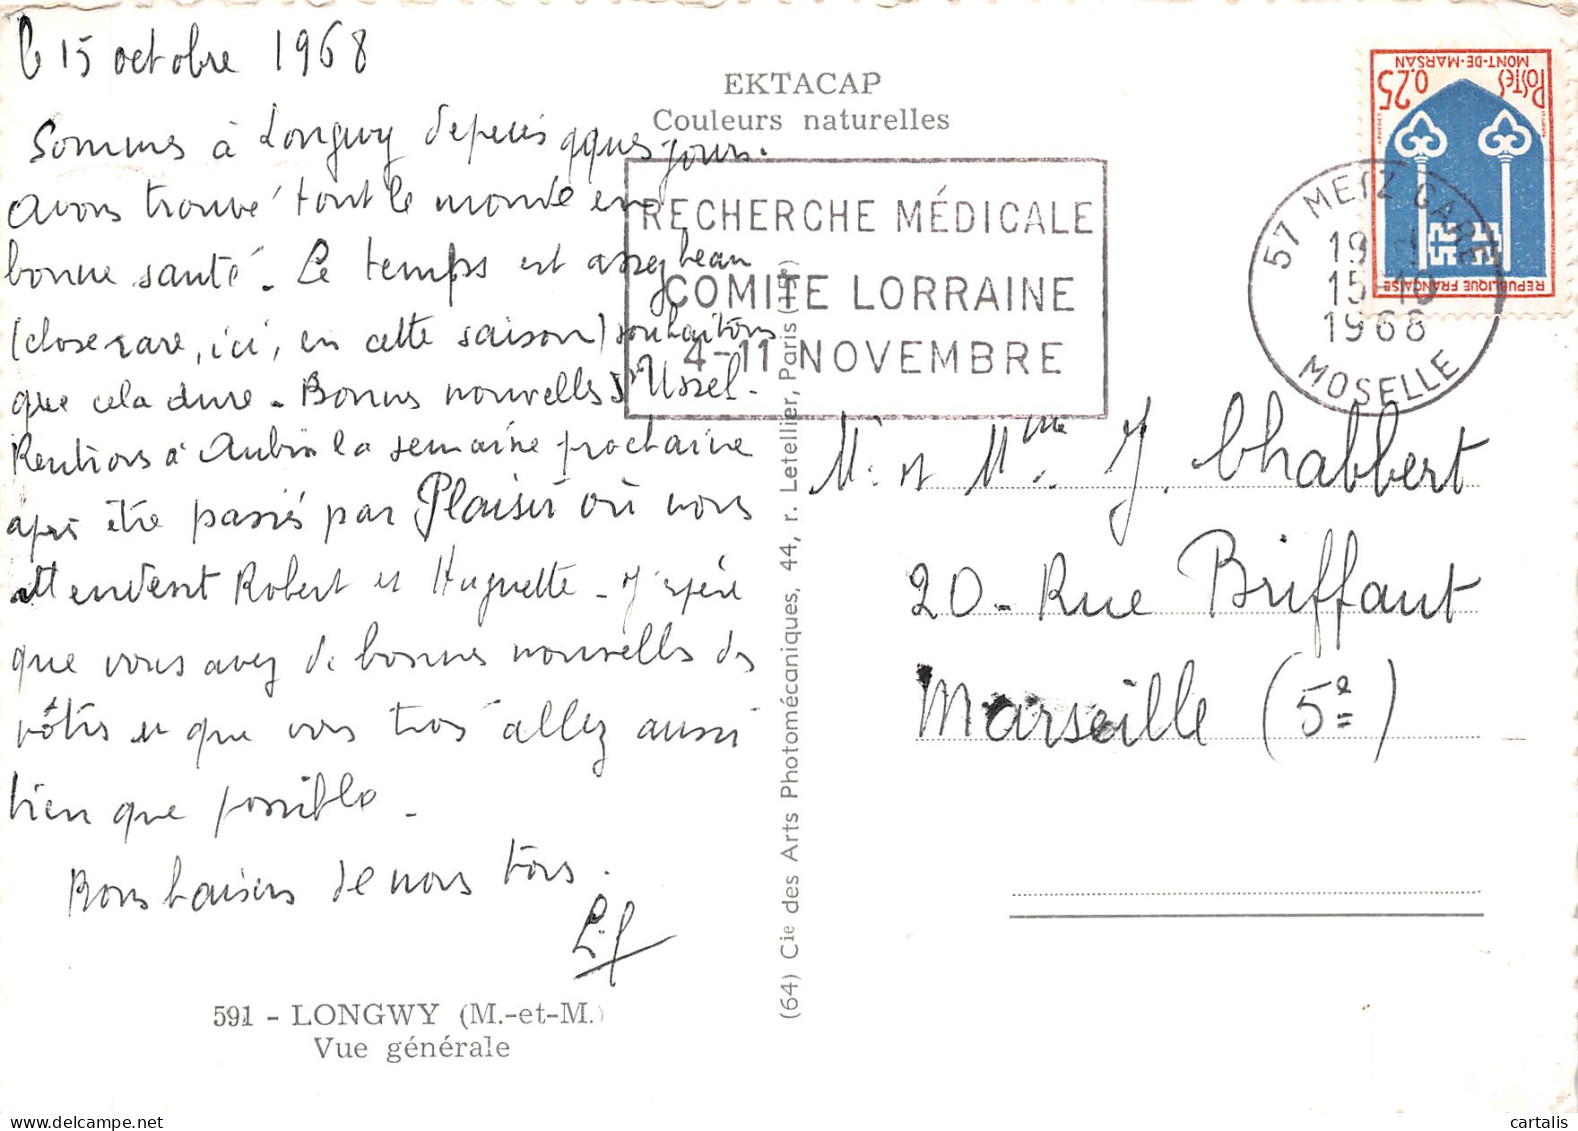 le 15 octobre 1968
Sommes à Longwy depuis qques jours.
avons trouvé tout le monde en
bonne santé. Le temps est assez beau
(chose rare, ici, en cette saison) souhaitons
que cela dure - Bonnes nouvelles d'Ussel.
Rentrons à Aubin la semaine prochaine
après être passés par Plaisir où nous
attendent Robert et Huguette - J'espère
que vous avez de bonnes nouvelles des
vôtres et que vous tous allez aussi
bien que possible -
Bons baisers de nous tous.
591 - LONGWY (M.-et-M.)
Vue générale
EKTACAP
Couleurs naturelles
RECHERCHE MÉDICALE
COMITE LORRAINE
4-11 NOVEMBRE
(64) Cie des Arts Photomécaniques, 44, r. Letellier, Paris
57 METZ GARE
19 H
15-10
1968
MOSELLE
REPUBLIQUE FRANÇAISE
POSTES
0,25
MONT-DE-MARSAN
Mr et Mme J. Chabbert
20 - Rue Briffaut
Marseille (5e)
cartalis